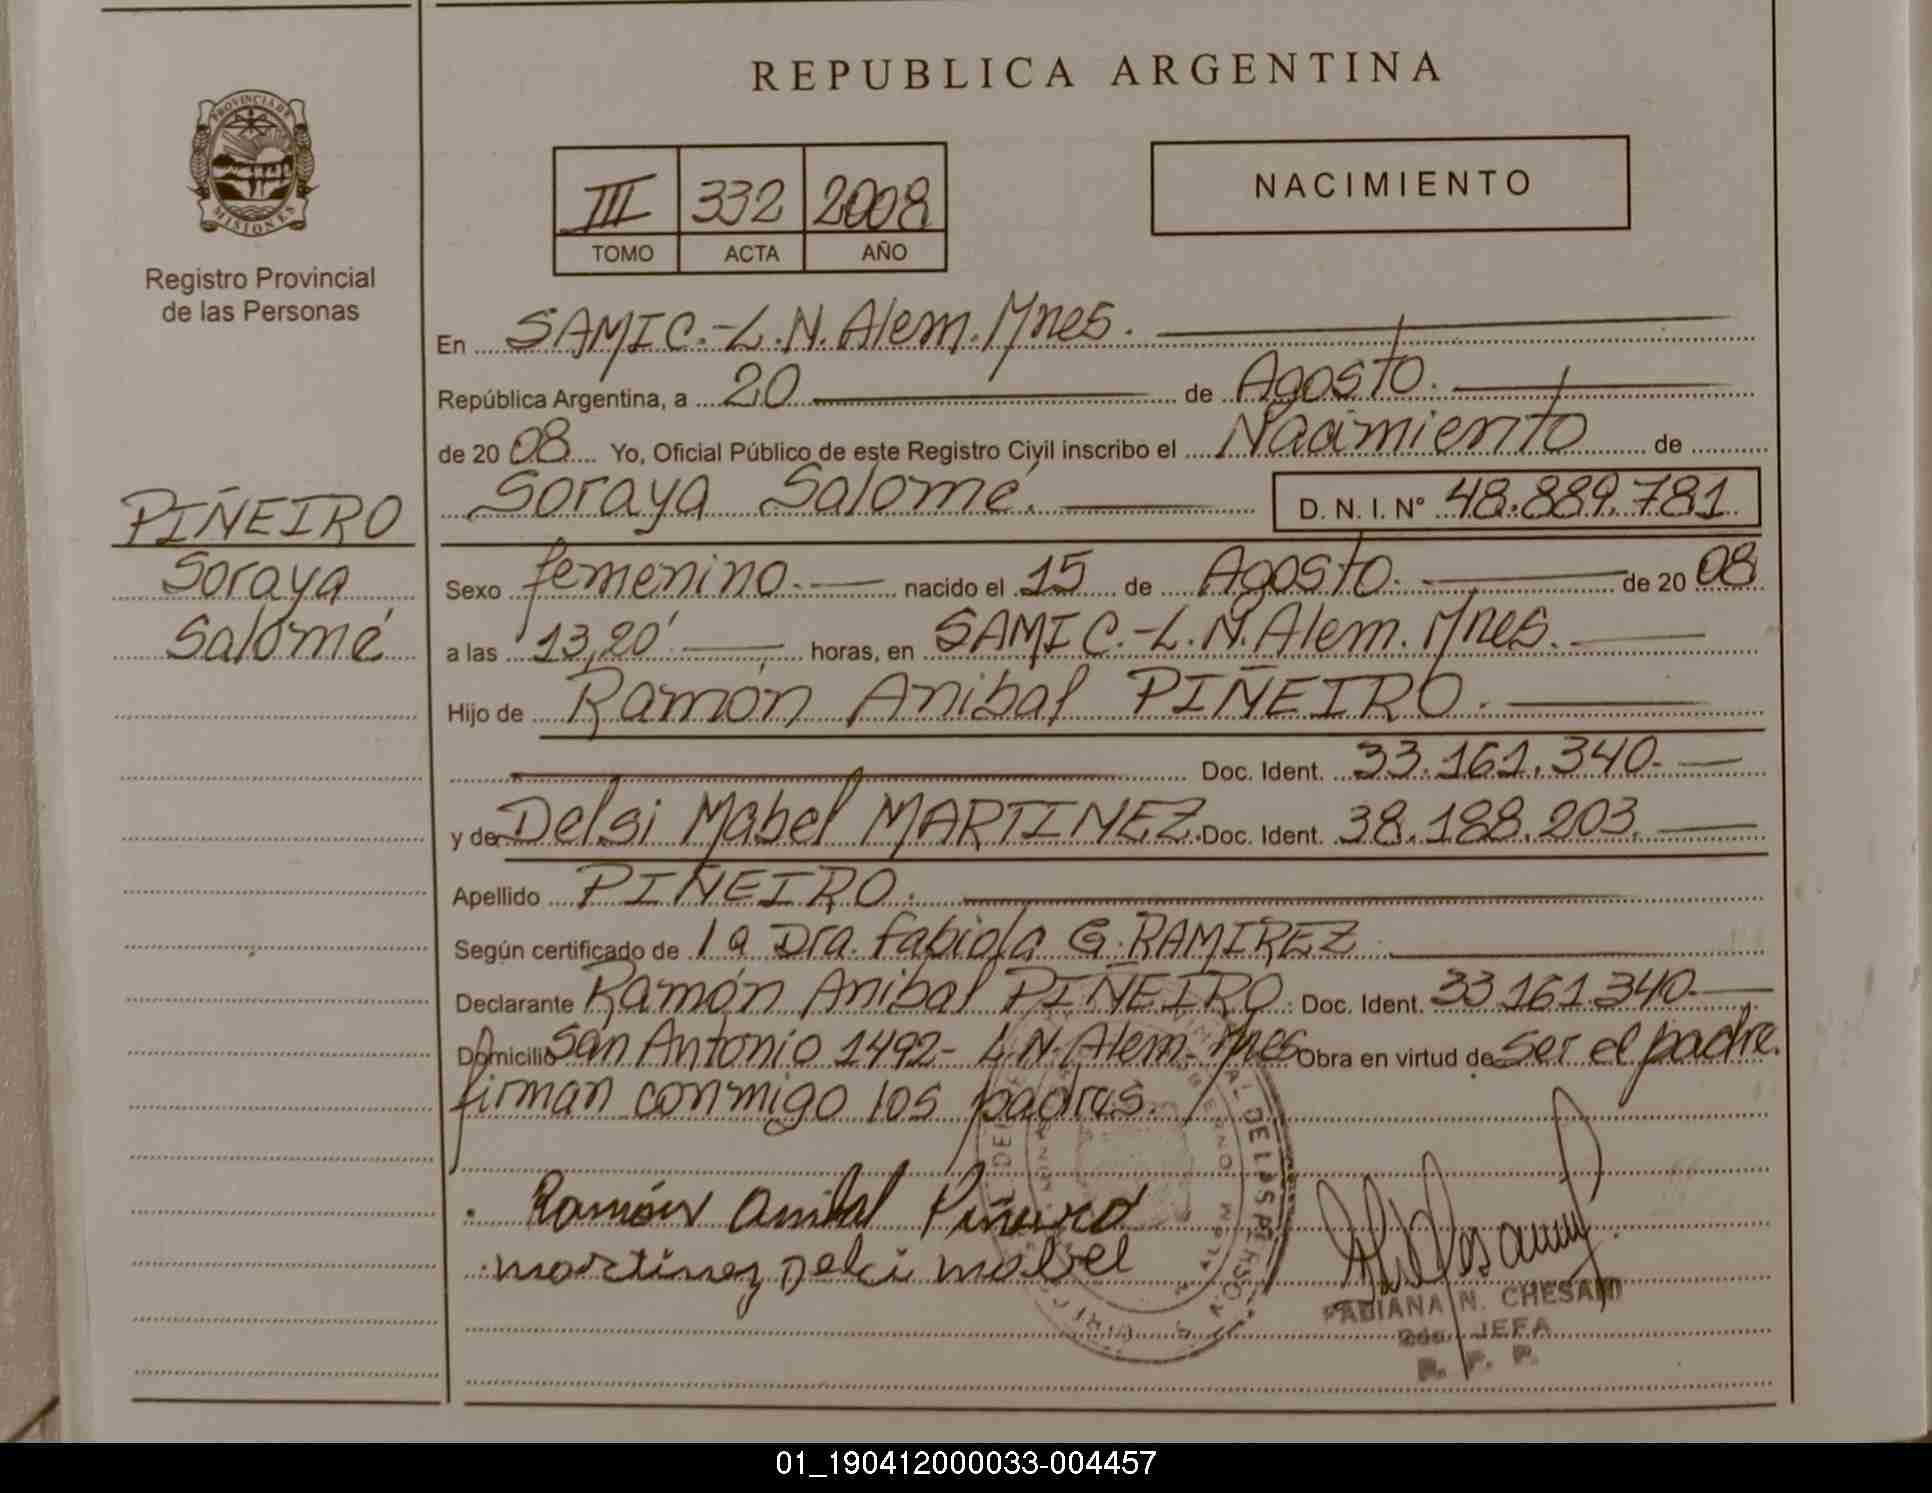 REPUBLICA ARGENTINA
PROVINCIA DE
MISIONES
Registro Provincial
de las Personas
III 332 2008
TOMO ACTA AÑO
NACIMIENTO
En SAMIC.-L.N.Alem.Mnes.
República Argentina, a 20 de Agosto.
de 20 08 Yo, Oficial Público de este Registro Civil inscribo el Nacimiento de
PIÑEIRO
Soraya
Salomé
Soraya Salomé. D. N. I. Nº 48.889.781
Sexo femenino.- nacido el 15 de Agosto. de 20 08
a las 13,20' horas, en SAMIC.-L.N.Alem.Mnes.
Hijo de Ramón Anibal PIÑEIRO.
Doc. Ident. 33.161.340.-
y de Delsi Mabel MARTINEZ. Doc. Ident. 38.188.203.
Apellido PIÑEIRO.
Según certificado de la Dra. Fabiola G. RAMIREZ
Declarante Ramón Anibal PIÑEIRO. Doc. Ident. 33.161.340.-
Domicilio San Antonio 1492- L.N.Alem-Mnes Obra en virtud de Ser el padre.
firman conmigo los padres.
Ramón Anibal Piñeiro
martinez Delci mabel
FABIANA N. CHESANI
2da. JEFA
R. P. P.
01_190412000033-004457